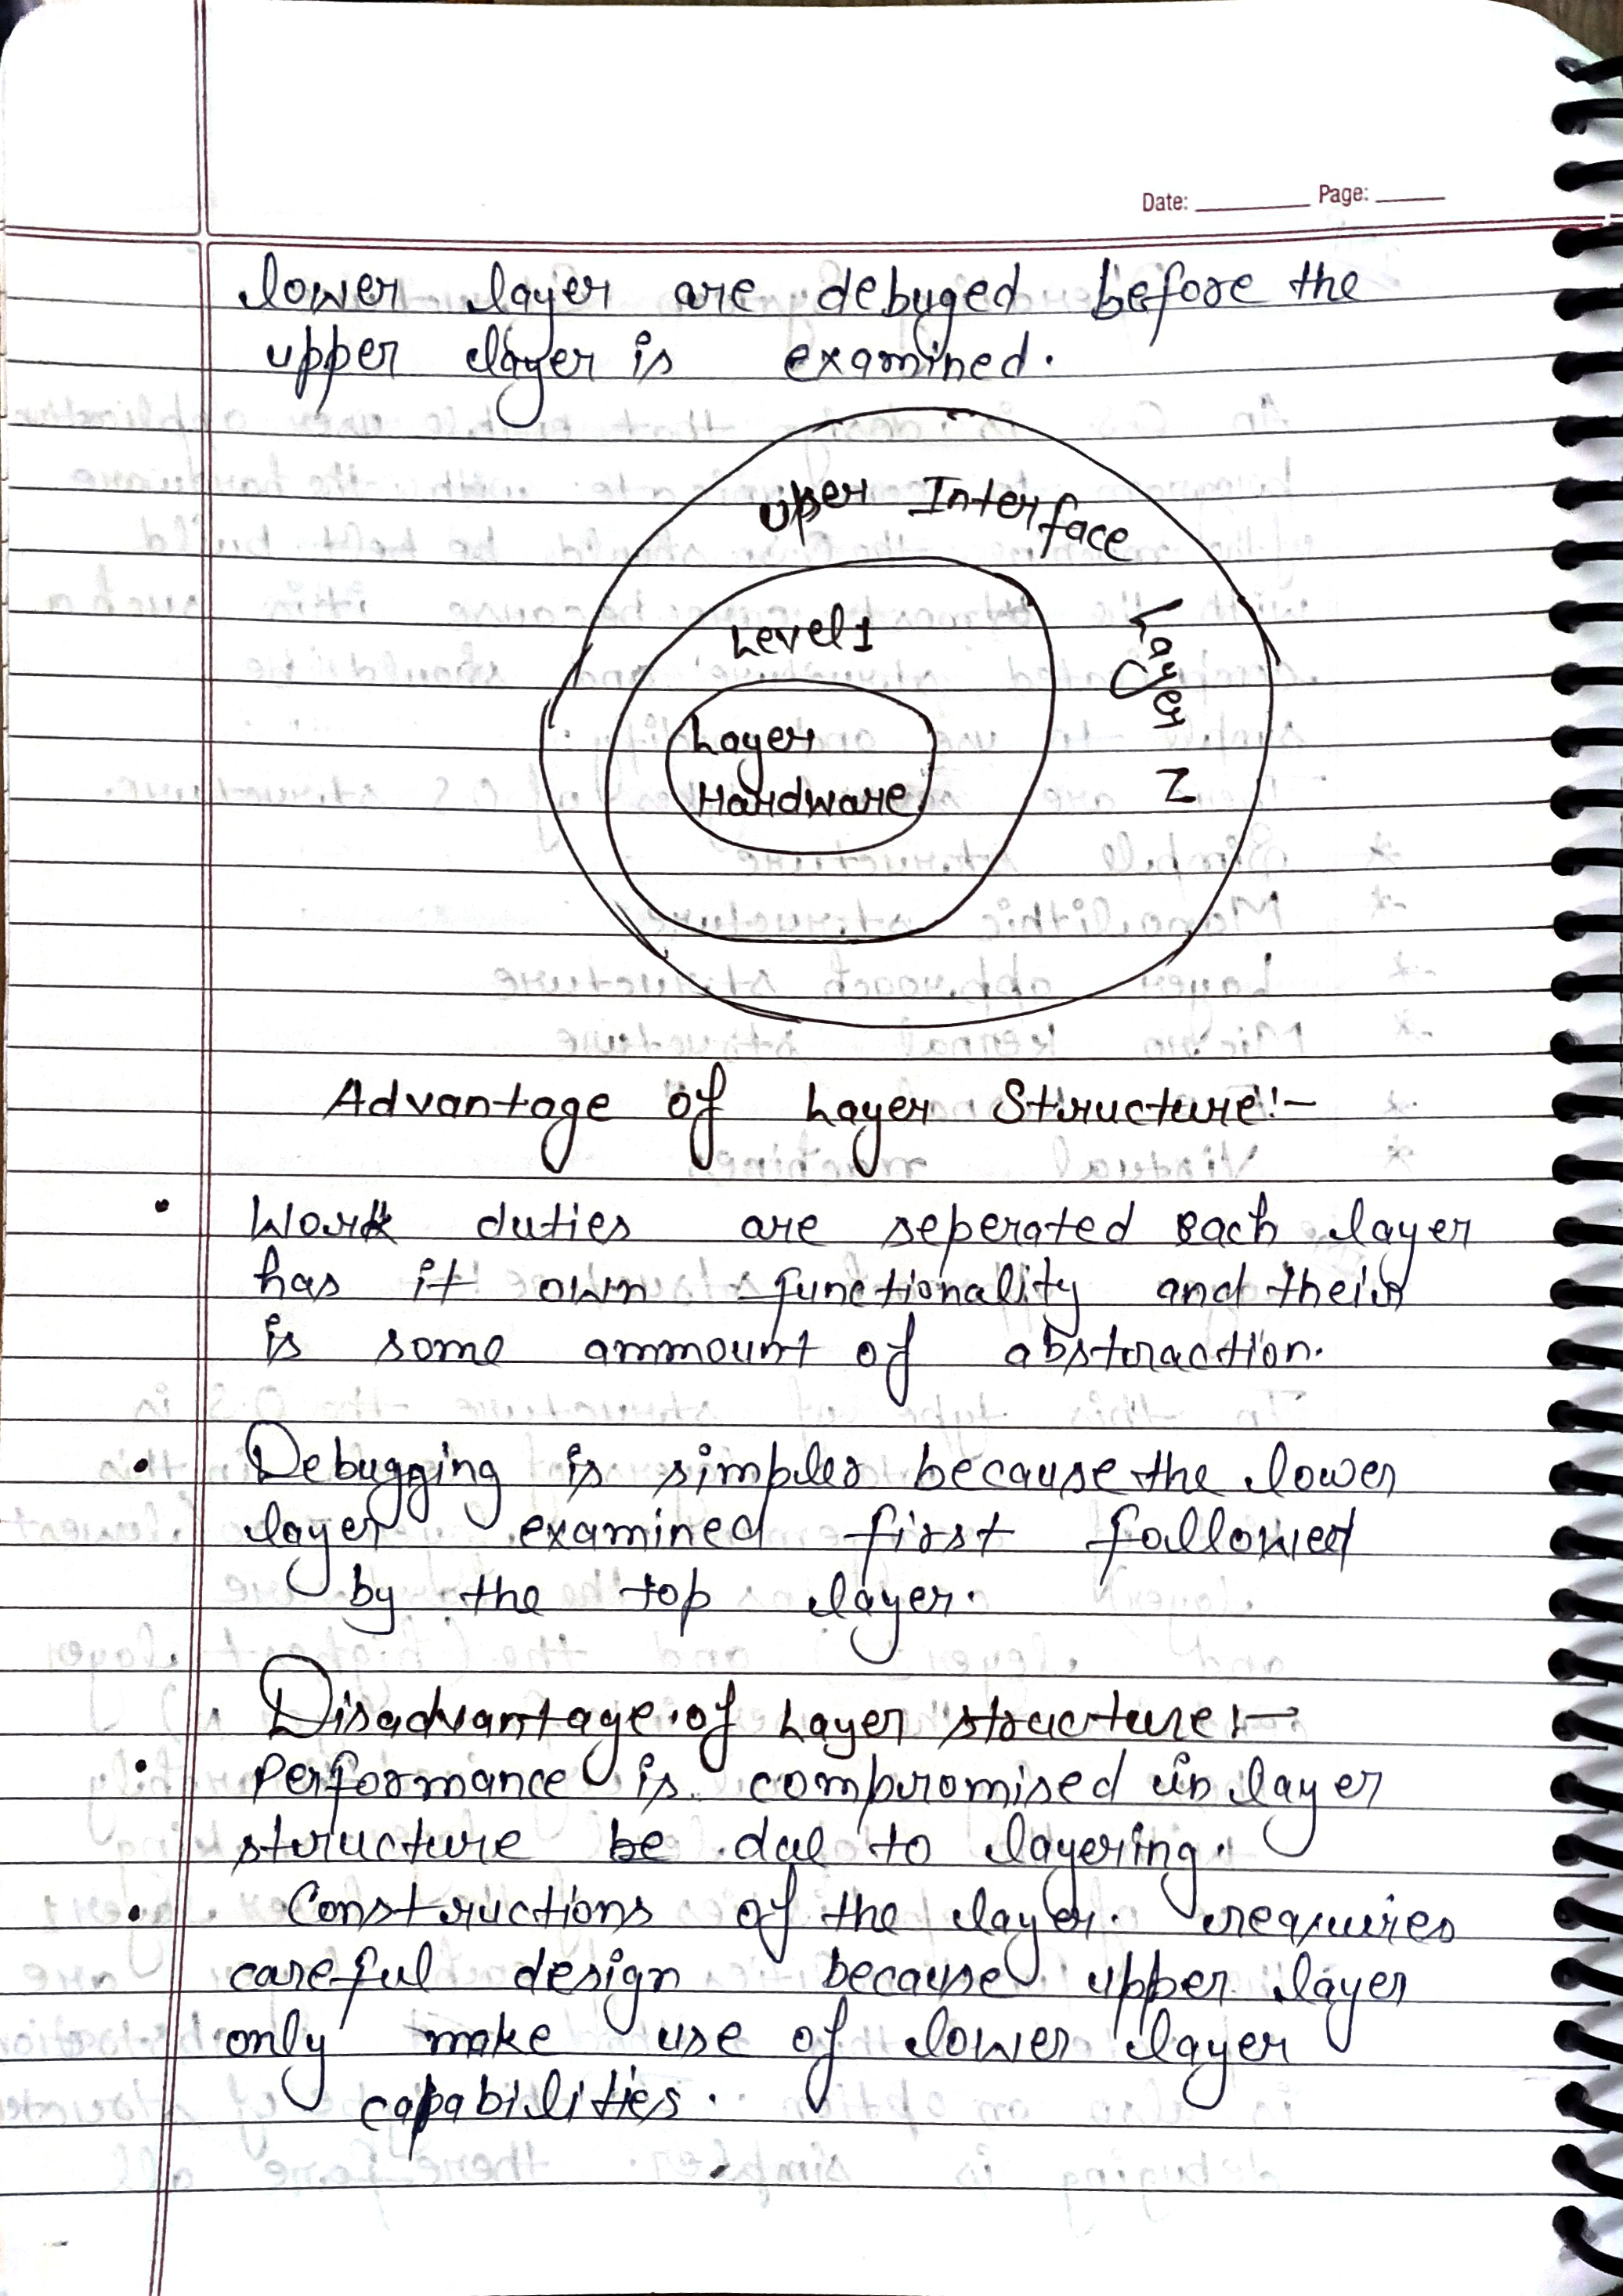 Date: Page:
lower layer are debuged before the
upper layer is examined.
Upser Interface
Level 1
Layer
Layer Z
Hardware
Advantage of Layer Structure:-
Work duties are seperated each layer
has it own functionality and their
is some ammount of abstraction.
Debugging is simples because the lower
layer examined first followed
by the top layer.
Disadvantage of Layer structure:-
Performance is compromised in layer
structure be due to layering.
Constructions of the layer. requires
careful design because upper layer
only make use of lower layer
capabilities.